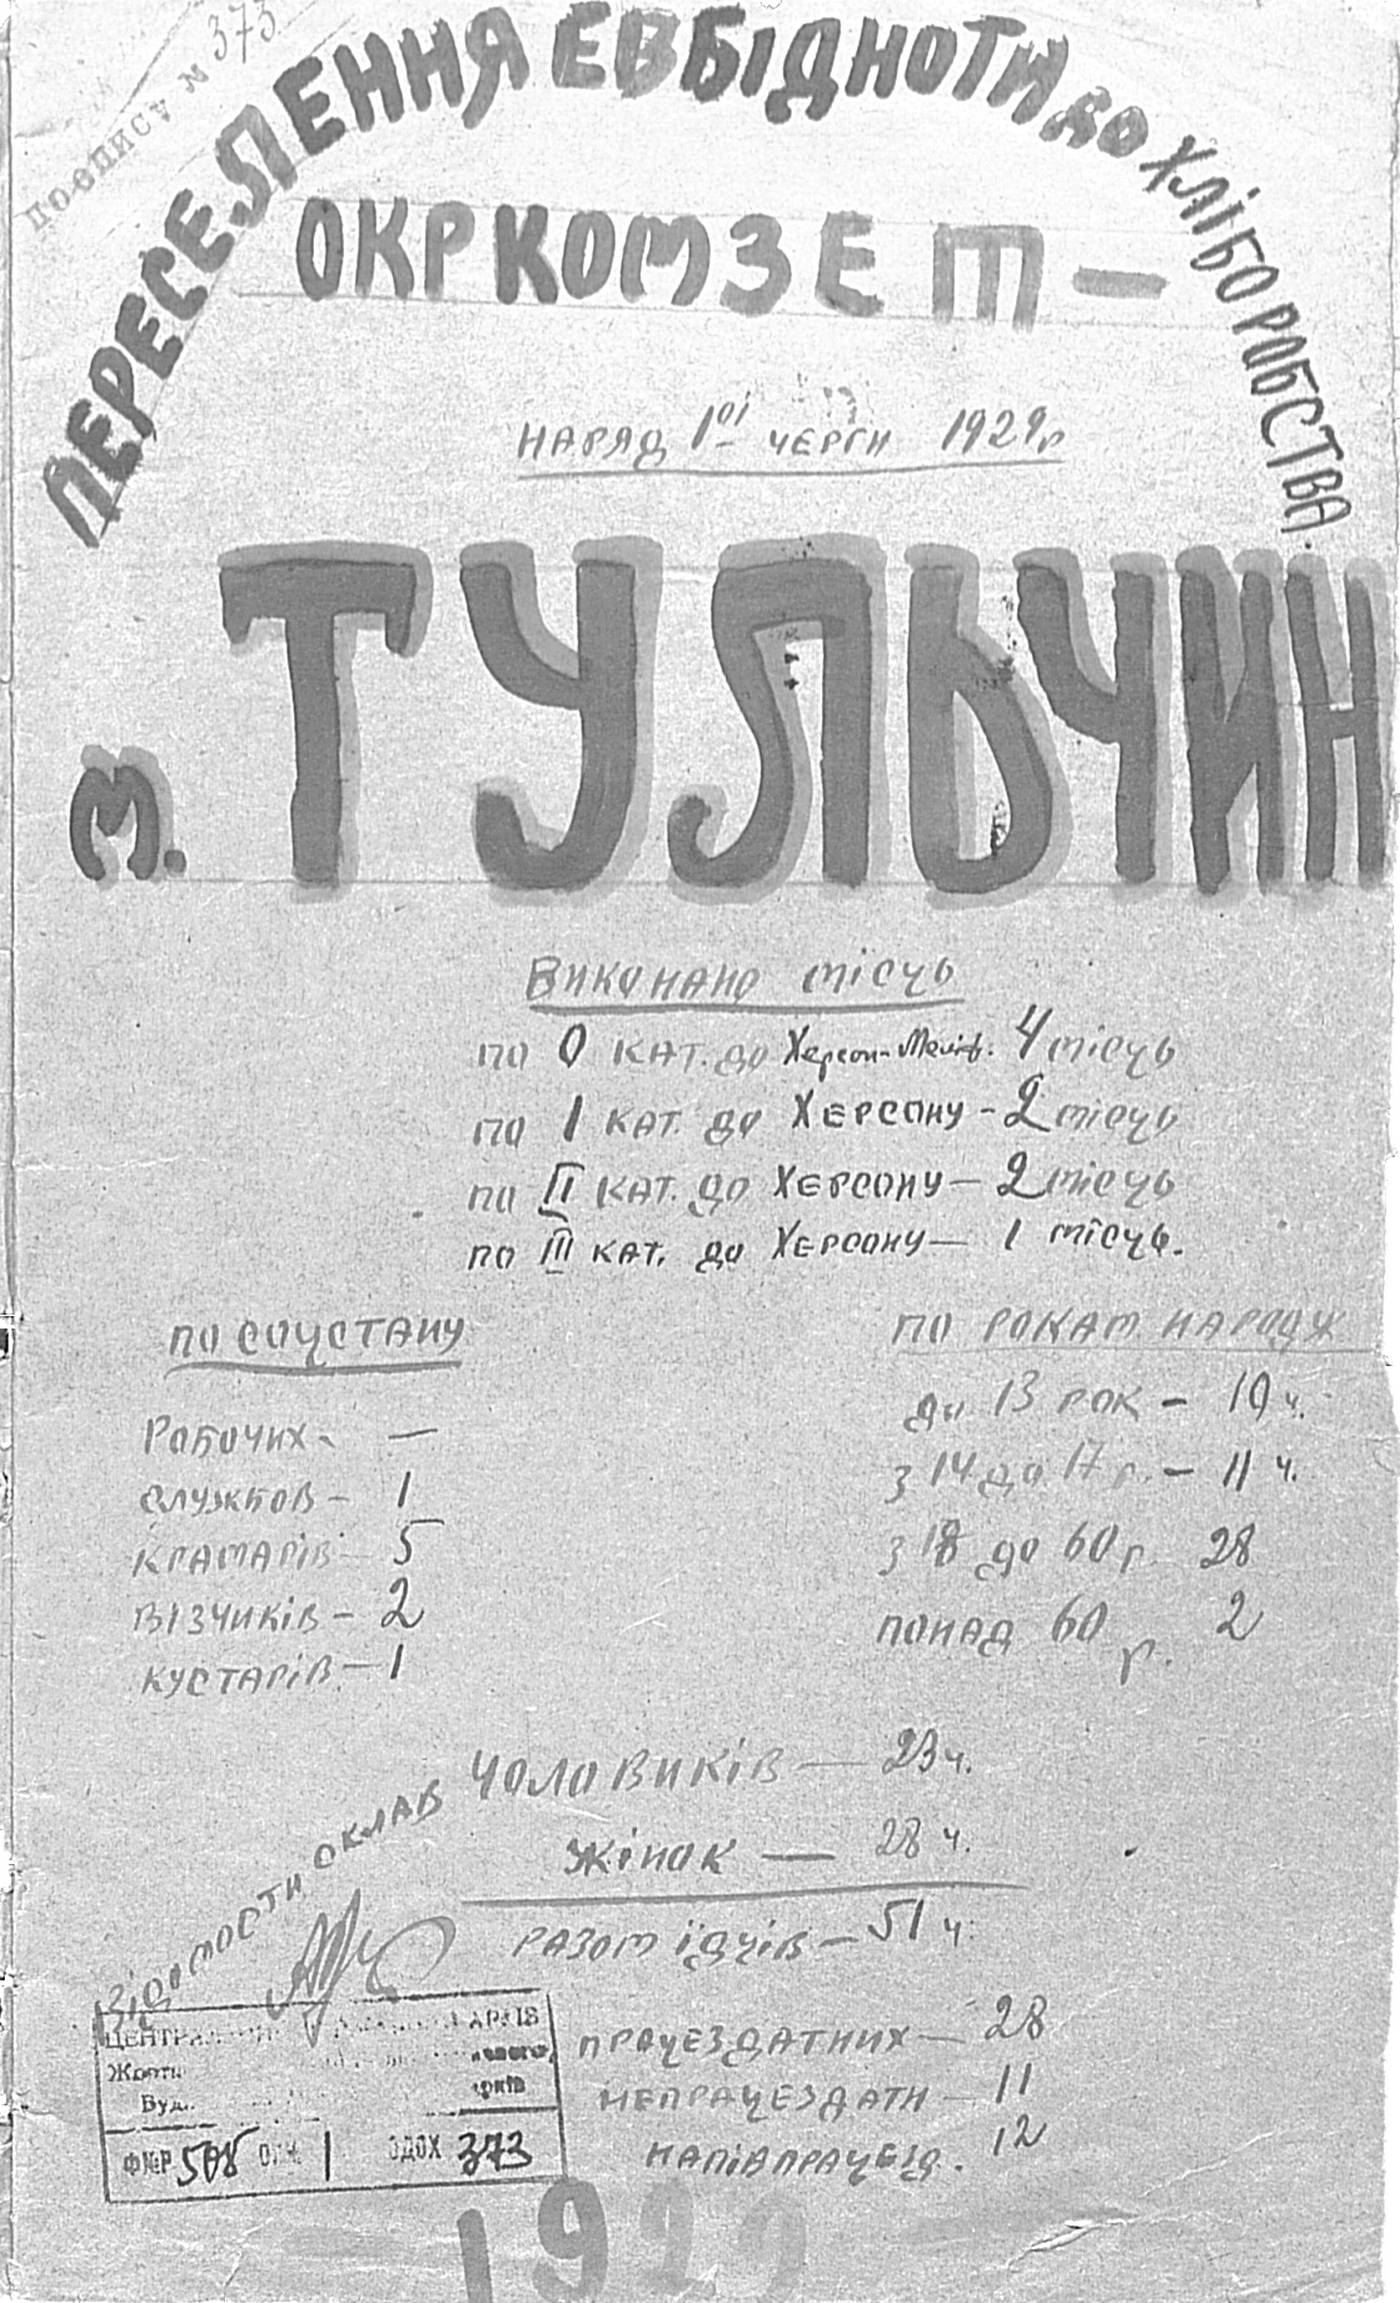 по опису № 373
ПЕРЕСЕЛЕННЯ ЕВБІДНОТИ ДО ХЛІБОРОБСТВА.
ОКРКОМЗЕТ —
НАРЯД 1ої ЧЕРГИ 1929р
м. ТУЛЬЧИН
Виконано місць
по 0 кат. до Херсон-Меліт. 4 місць
по 1 кат. до Херсону - 2 місць
по II кат. до Херсону — 2 місць
по III кат. до Херсону — 1 місць.
по соцстану
Робочих - —
службов - 1
крамарів - 5
візчиків - 2
кустарів - 1
по рокам народж
до 13 рок - 10 ч.
з 14 до 17 р. - 11 ч.
з 18 до 60 р. 28
понад 60 р. 2
Чоловиків — 23 ч.
жінок — 28 ч.
разом їдців — 51 ч.
працездатних — 28
непрацездатн — 11
напівпрацезд. 12
Відомости склав
ЦЕНТРАЛЬНИЙ АРХІВ
Ф№Р 508 ОП№ 1 ОДОХ 373
192